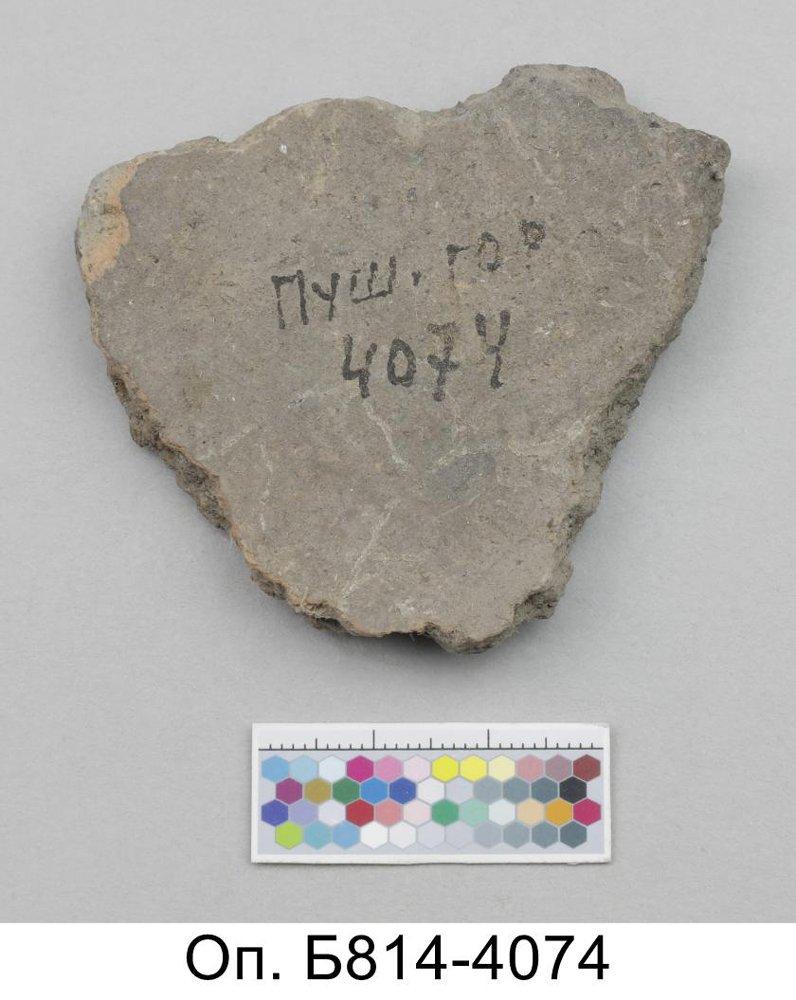 ПУШ. ГОР
4074
Оп. Б814-4074